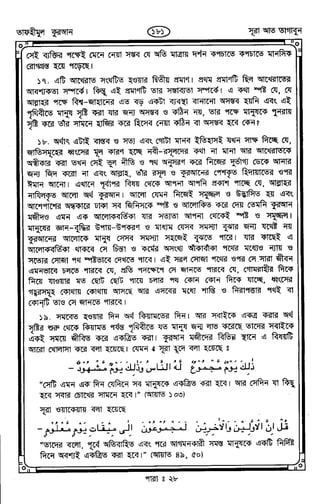 তাফহীমুল কুরআন
১৮১
সূরা আত তাগাবুন
সেই ব্যক্তির পক্ষেই মেনে নেয়া সম্ভব যে অতি মাত্রায় দর্শন কপচাতে কপচাতে মানসিক
রোগগ্রস্ত হয়ে পড়েছে।
১৭. এটি আখেরাত সংঘটিত হওয়ার দ্বিতীয় প্রমাণ। প্রথম প্রমাণটি ছিল আখেরাতের
আবশ্যকতা সম্পর্কে। কিন্তু এই প্রমাণটি তার সম্ভাব্যতা সম্পর্কে। এ কথা স্পষ্ট যে, যে
আল্লাহর পক্ষে বিশ্ব-জাহানের এত বড় একটা ব্যবস্থা বানানো অসম্ভব হয়নি এবং এই
পৃথিবীতে মানুষ সৃষ্টি করা যার জন্য অসম্ভব ও কঠিন নয়, তার পক্ষে মানুষকে পুনরায়
সৃষ্টি করে তাঁর সামনে হাজির করে হিসেব নেয়া কঠিন বা অসম্ভব হবে কেন?
১৮. অর্থাৎ এটাই বাস্তব ও সত্য এবং গোটা মানব ইতিহাসই যখন সাক্ষ্য দিচ্ছে যে,
জাতিসমূহের ধ্বংসের মূল কারণ হচ্ছে নবী-রসূলদের কথা না মানা আর আখেরাতকে
অস্বীকার করা তখন সেই ভুল নীতি ও পথ অনুসরণ করে নিজের দুর্ভাগ্য ডেকে আনার
জন্য জিদ করো না এবং আল্লাহ, তাঁর রসূল ও কুরআনের পেশকৃত হিদায়াতের ওপর
ঈমান আনো। এখানে পূর্বাপর বিষয় থেকে আপনা আপনি প্রকাশ পাচ্ছে যে, আল্লাহর
নাযিলকৃত আলো অর্থ কুরআন। আলো যেমন নিজেই সমুজ্জ্বল ও উদ্ভাসিত হয় এবং
আশেপাশের অন্ধকারে ঢাকা সব জিনিসকে স্পষ্ট ও আলোকিত করে দেয় তেমনি কুরআন
মজীদও এমন এক আলোকবর্তিকা যার সত্যতা আপনা থেকেই স্পষ্ট ও সমুজ্জল।
মানুষের জ্ঞান-বুদ্ধির উপায়-উপকরণ ও মাধ্যম যেসব সমস্যা বুঝার জন্য যথেষ্ট নয়
কুরআনের আলোকে মানুষ সেসব সমস্যা সহজেই বুঝতে পারে। যার কাছেই এ
আলোকবর্তিকা থাকবে সে চিন্তা ও কর্মের অসংখ্য আঁকাবাঁকা পথের মধ্যেও ন্যায় ও
সত্যের সোজা পথ স্পষ্টভাবে দেখতে পাবে। এই সরল সোজা পথের ওপর সে সারা জীবন
এমনভাবে চলতে পারবে যে, প্রতি পদক্ষেপে সে জানতে পারবে যে, গোমরাহীর দিকে
নিয়ে যাওয়ার মত ছোট ছোট পায়ে চলার পথ কোন কোন দিকে যাচ্ছে, ধ্বংসের
গহ্বরসমূহ কোথায় কোথায় আসছে আর এসবের মধ্যে শান্তি ও নিরাপত্তার পথই বা
কোনটি তাও সে জানতে পারবে।
১৯. সমবেত হওয়ার দিন অর্থ কিয়ামতের দিন। আর সবাইকে একত্র করার অর্থ
সৃষ্টির শুরু থেকে কিয়ামত পর্যন্ত পৃথিবীতে যত মানুষ জন্ম লাভ করেছে তাদের সবাইকে
একই সময়ে জীবিত করে একত্রিত করা। কুরআন মজীদের বিভিন্ন স্থানে এ বিষয়টি
আরো খোলাসা করে বলা হয়েছে। যেমন : সূরা হূদে বলা হয়েছে :
ذلِكَ يَوْمٌ مَّجْمُوعٌ لَّهُ النَّاسُ وَذلِكَ يَوْمٌ مَّشْهُودٌ -
"সেটি এমন এক দিন যেদিনে সব মানুষকে একত্রিত করা হবে। আর সেদিন যা কিছু
হবে সবার চোখের সামনে হবে।" (আয়াত ১০৩)
সূরা ওয়াকেয়ায় বলা হয়েছে
قُلْ اِنَّ الْاَوَّلِيْنَ وَالْاٰخِرِيْنَ لَمَجْمُوْعُوْنَ اِلٰى مِيْقَاتِ يَوْمٍ مَّعْلُوْمٍ -
"তাদের বলো, পূর্বে অতিবাহিত এবং পরে আগমনকারী সমস্ত মানুষকে একটি নির্দিষ্ট
দিনে অবশ্যই একত্রিত করা হবে।" (আয়াত ৪৯, ৫০)
পারা : ২৮